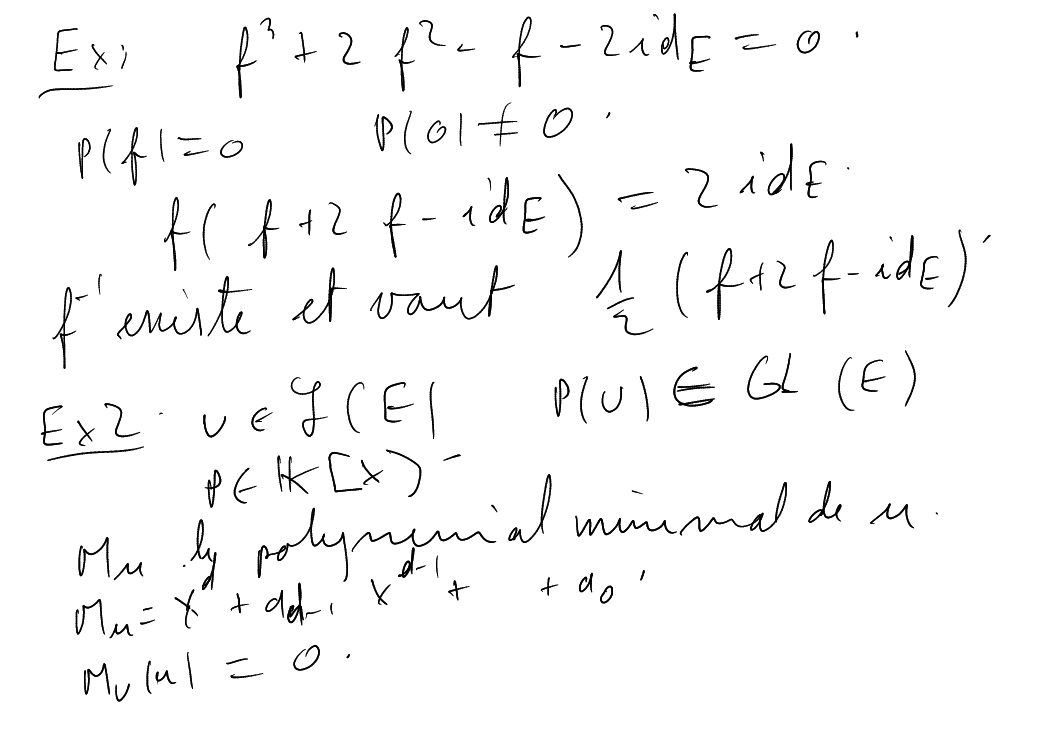 Ex: f³ + 2 f² - f - 2 id_E = 0 .
P(f) = 0 P(0) ≠ 0 .
f( f + 2 f - id_E ) = 2 id_E .
f⁻¹ existe et vaut 1/2 ( f + 2 f - id_E ) .
Ex2 . u ∈ L(E) P(u) ∈ GL (E)
P ∈ K[X] -
M_u polynomial minimal de u .
M_u = X^d + a_{d-1} X^{d-1} + + a_0 .
M_u(u) = 0 .